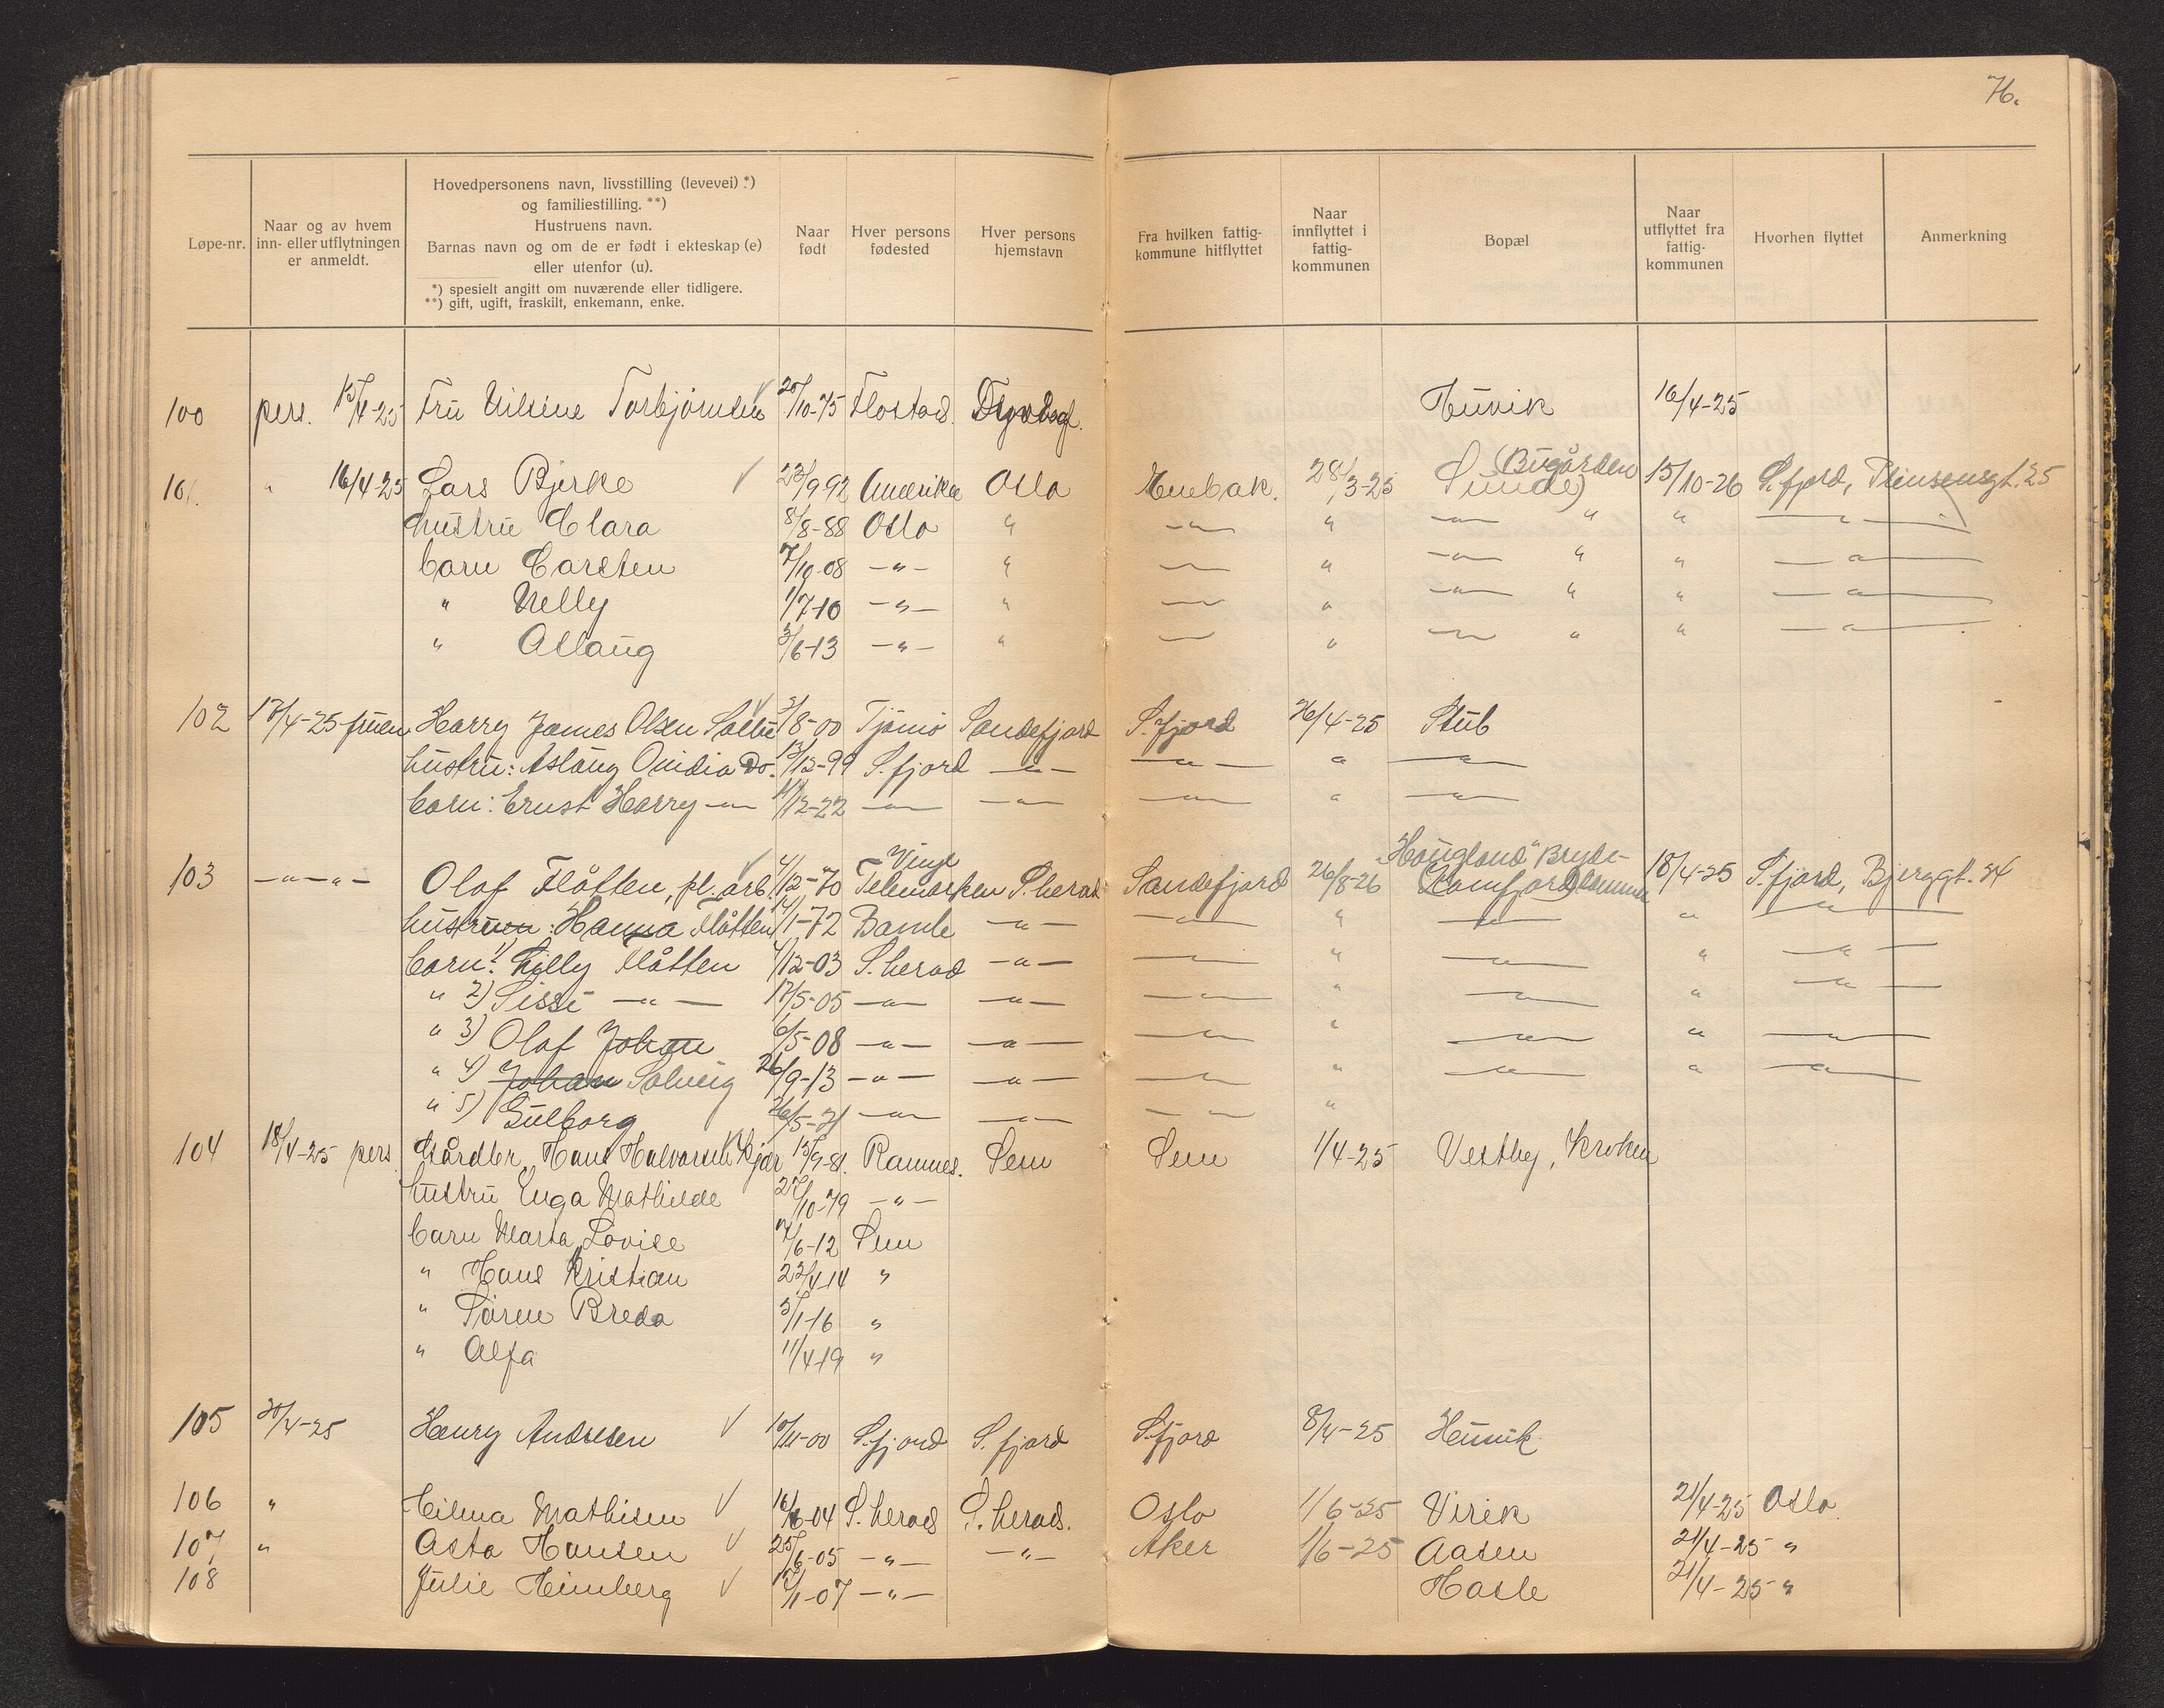 76.
Løpe-nr. Naar og av hvem inn- eller utflytningen er anmeldt. Hovedpersonens navn, livsstilling (levevei) *) og familiestilling. **) Hustruens navn. Barnas navn og om de er født i ekteskap (e) eller utenfor (u). *) spesielt angitt om nuværende eller tidligere. **) gift, ugift, fraskilt, enkemann, enke. Naar født Hver persons fødested Hver persons hjemstavn Fra hvilken fattig-kommune hitflyttet Naar innflyttet i fattig-kommunen Bopæl Naar utflyttet fra fattig-kommunen Hvorhen flyttet Anmerkning
100 pers. 15/4-25 Fru Nilsine Torbjørnsen 20/10-75 Flostad. Huvik 16/4-25
101. " 16/4-25 Lars Bjerke 23/9-92 Amerika Oslo Enebak. 28/3-25 Sunde) Bugården 15/10-26 S.fjord, 25
hustru Clara 8/8-88 Oslo " —"— " —"— " " —"—
barn Carsten 7/10-08 —"— " —"— " —"— " " —"—
" Nelly 1/7-10 —"— " —"— " —"— " " —"—
" Aslaug 3/6-13 —"— " —"— " —"— " " —"—
102 17/4-25 fruen Harry James Olsen 3/8-00 Tjømø Sandefjord S.fjord 26/4-25 Stub
hustru: Aslaug Ovidia Do. 13/12-99 S.fjord —"— —"— " —"—
barn: Ernst Harry —"— 11/12-22 —"— —"— —"— " —"—
103 —"—"— Olaf Flåtten, pl. arb. 4/12-70 Vinje Telemarken S.herad Sandefjord 26/8-26 "Haugland" Bryde- Kamfjord 18/4-25 S.fjord, Bjerggt. 34
hustruen: Hanna Flåtten 14/1-72 Bamle —"— —"— " —"— " —"—
barn: 1) Lilly Flåtten 4/12-03 S.herad —"— —"— " —"— " —"—
" 2) Sissi —"— 17/5-05 —"— —"— —"— " —"— " —"—
" 3) Olaf Johan 6/5-08 —"— —"— —"— " —"— " —"—
" 4) Johan Solveig 26/9-13 —"— —"— —"— " —"— " —"—
" 5) Gulborg 26/5-21 —"— —"— —"— "
104 18/4-25 pers. Gårdbr. Hans Halvorsen Kjær 15/9-81. Ramnes. Sem Sem 1/4-25 Vestby, Kroken
hustru Inga Mathilde 27/10-79 —"—
barn Marta Lovise 14/6-12 Sem
" Hans Kristian 22/4-14 "
" Søren Breda 5/1-16 "
" Alfa 11/4-19 "
105 20/4-25 Henry Andresen 10/11-00 S.fjord S.fjord S.fjord 8/4-25 Heimvik
106 " Hilma Mathisen 16/6-04 S.herad S.herad. Oslo 1/6-25 Virik 21/4-25 Oslo.
107 " Asta Hansen 25/6-05 —"— —"— Aker 1/6-25 Aasen 21/4-25 "
108 Julie Heimberg 12/1-07 —"— Hasle 21/4-25 "